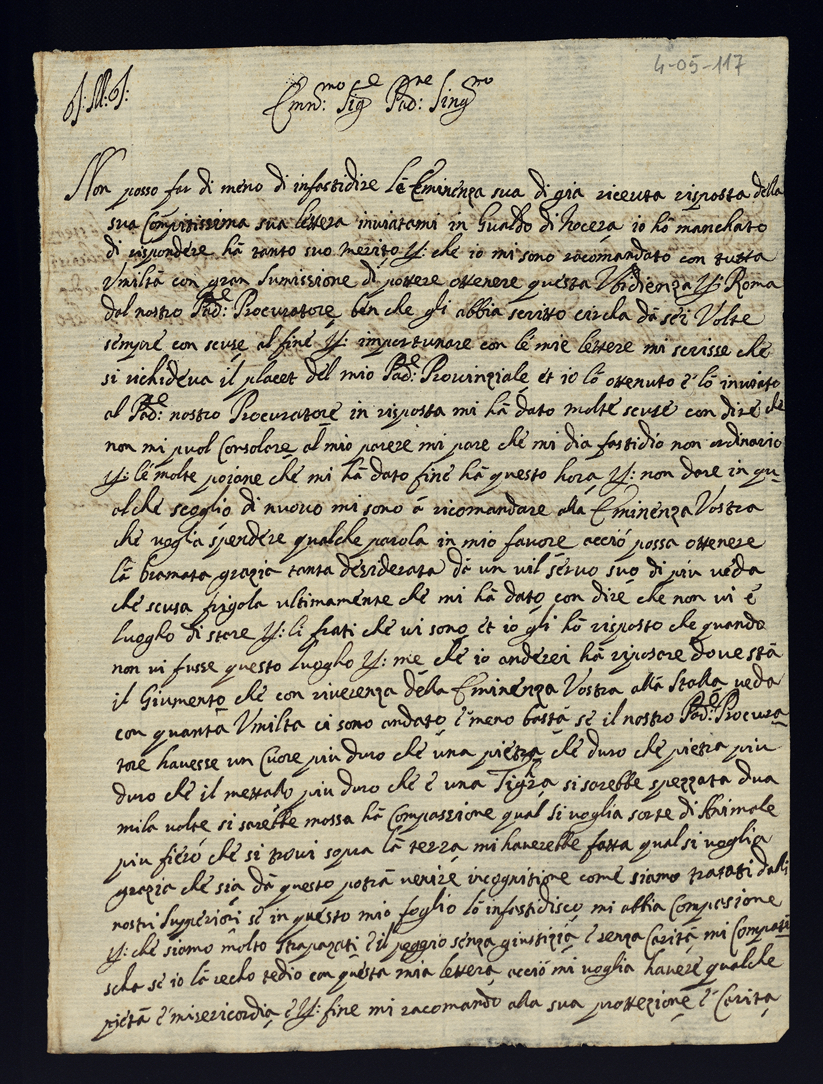 4-05-117
J: M: J:
Emn:mo Sigre Pad:ne Sing:mo
Non posso far di meno di infastidire Lã Eminenza sua di gia riceuta risposta della
sua Compitissima sua lettera inviatami in Gualdo di Nocera io hò manchato
di rispondere hà tanto suo merito P: che io mi sono racomandato con tutta
Vmiltà con gran Sumissione di pottere ottenere questa Vbidienza P: Roma
dal nostro Pad:e Procuratore ben che gli abbia scritto circha dà sei Volte
sempre con scuse al fine P: importunare con le mie lettere mi scrisse che
si richideva il placet del mio Pad:e Provinziale et io lò ottenuto è lò inviato
al Pad:e nostro Procuratore in risposta mi hà dato molte scuse con dire che
non mi puol Consolare al mio parere mi pare che mi dia fastidio non ordinario
P: le molte pojane che mi hà dato fine hà questo hora P: non dare in qu-
alche scoglio di nuovo mi sono à ricomandare alla Eminenza Vostra
che voglia spendere qualche parola in mio favore acciò possa ottenere
là bramata grazia tanta desiderata dà un vil servo suo di piu veda
che scusa frigola ultimamente che mi hà dato con dire che non vi è
luogho di stare P: li frati che vi sono et io gli hò risposto che quando
non vi fusse questo luogho P: me che io anderei hà riposare dove stà
il Giumento che con riverenza della Eminenza Vostra alla Stalla veda
con quanta Vmilta ci sono andato è meno bastà se il nostro Pad:e Procura-
tore havesse un Cuore piu duro che una pietra che duro che pietra piu
duro che il mettallo piu duro che è una Tighra si sarebbe spezzata dua
mila volte si sarebbe mossa hà Compassione qual si voglia sorte di Animale
piu fiero che si trovi sopra là terra mi haverebbe fatta qual si voglia
grazia che sia dà questo potrà venire incognitione come siamo tratati dalli
nostri Supperiori se in questo mio foglio lò infastidisco mi abbia Compasione
P: che siamo molto strapazati è il peggio senza giustizia è senza Carità mi Compati-
scha se io là recho tedio con questa mia lettera acciò mi voglia havere qualche
pietà è misericordia è P: fine mi racomando alla sua prottezione è Carità